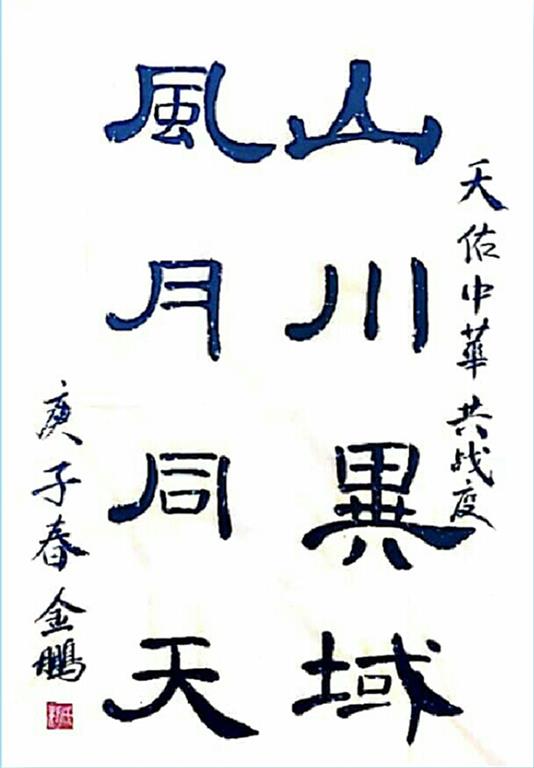 天佑中華共战疫
山川異域
風月同天
庚子春金鵬